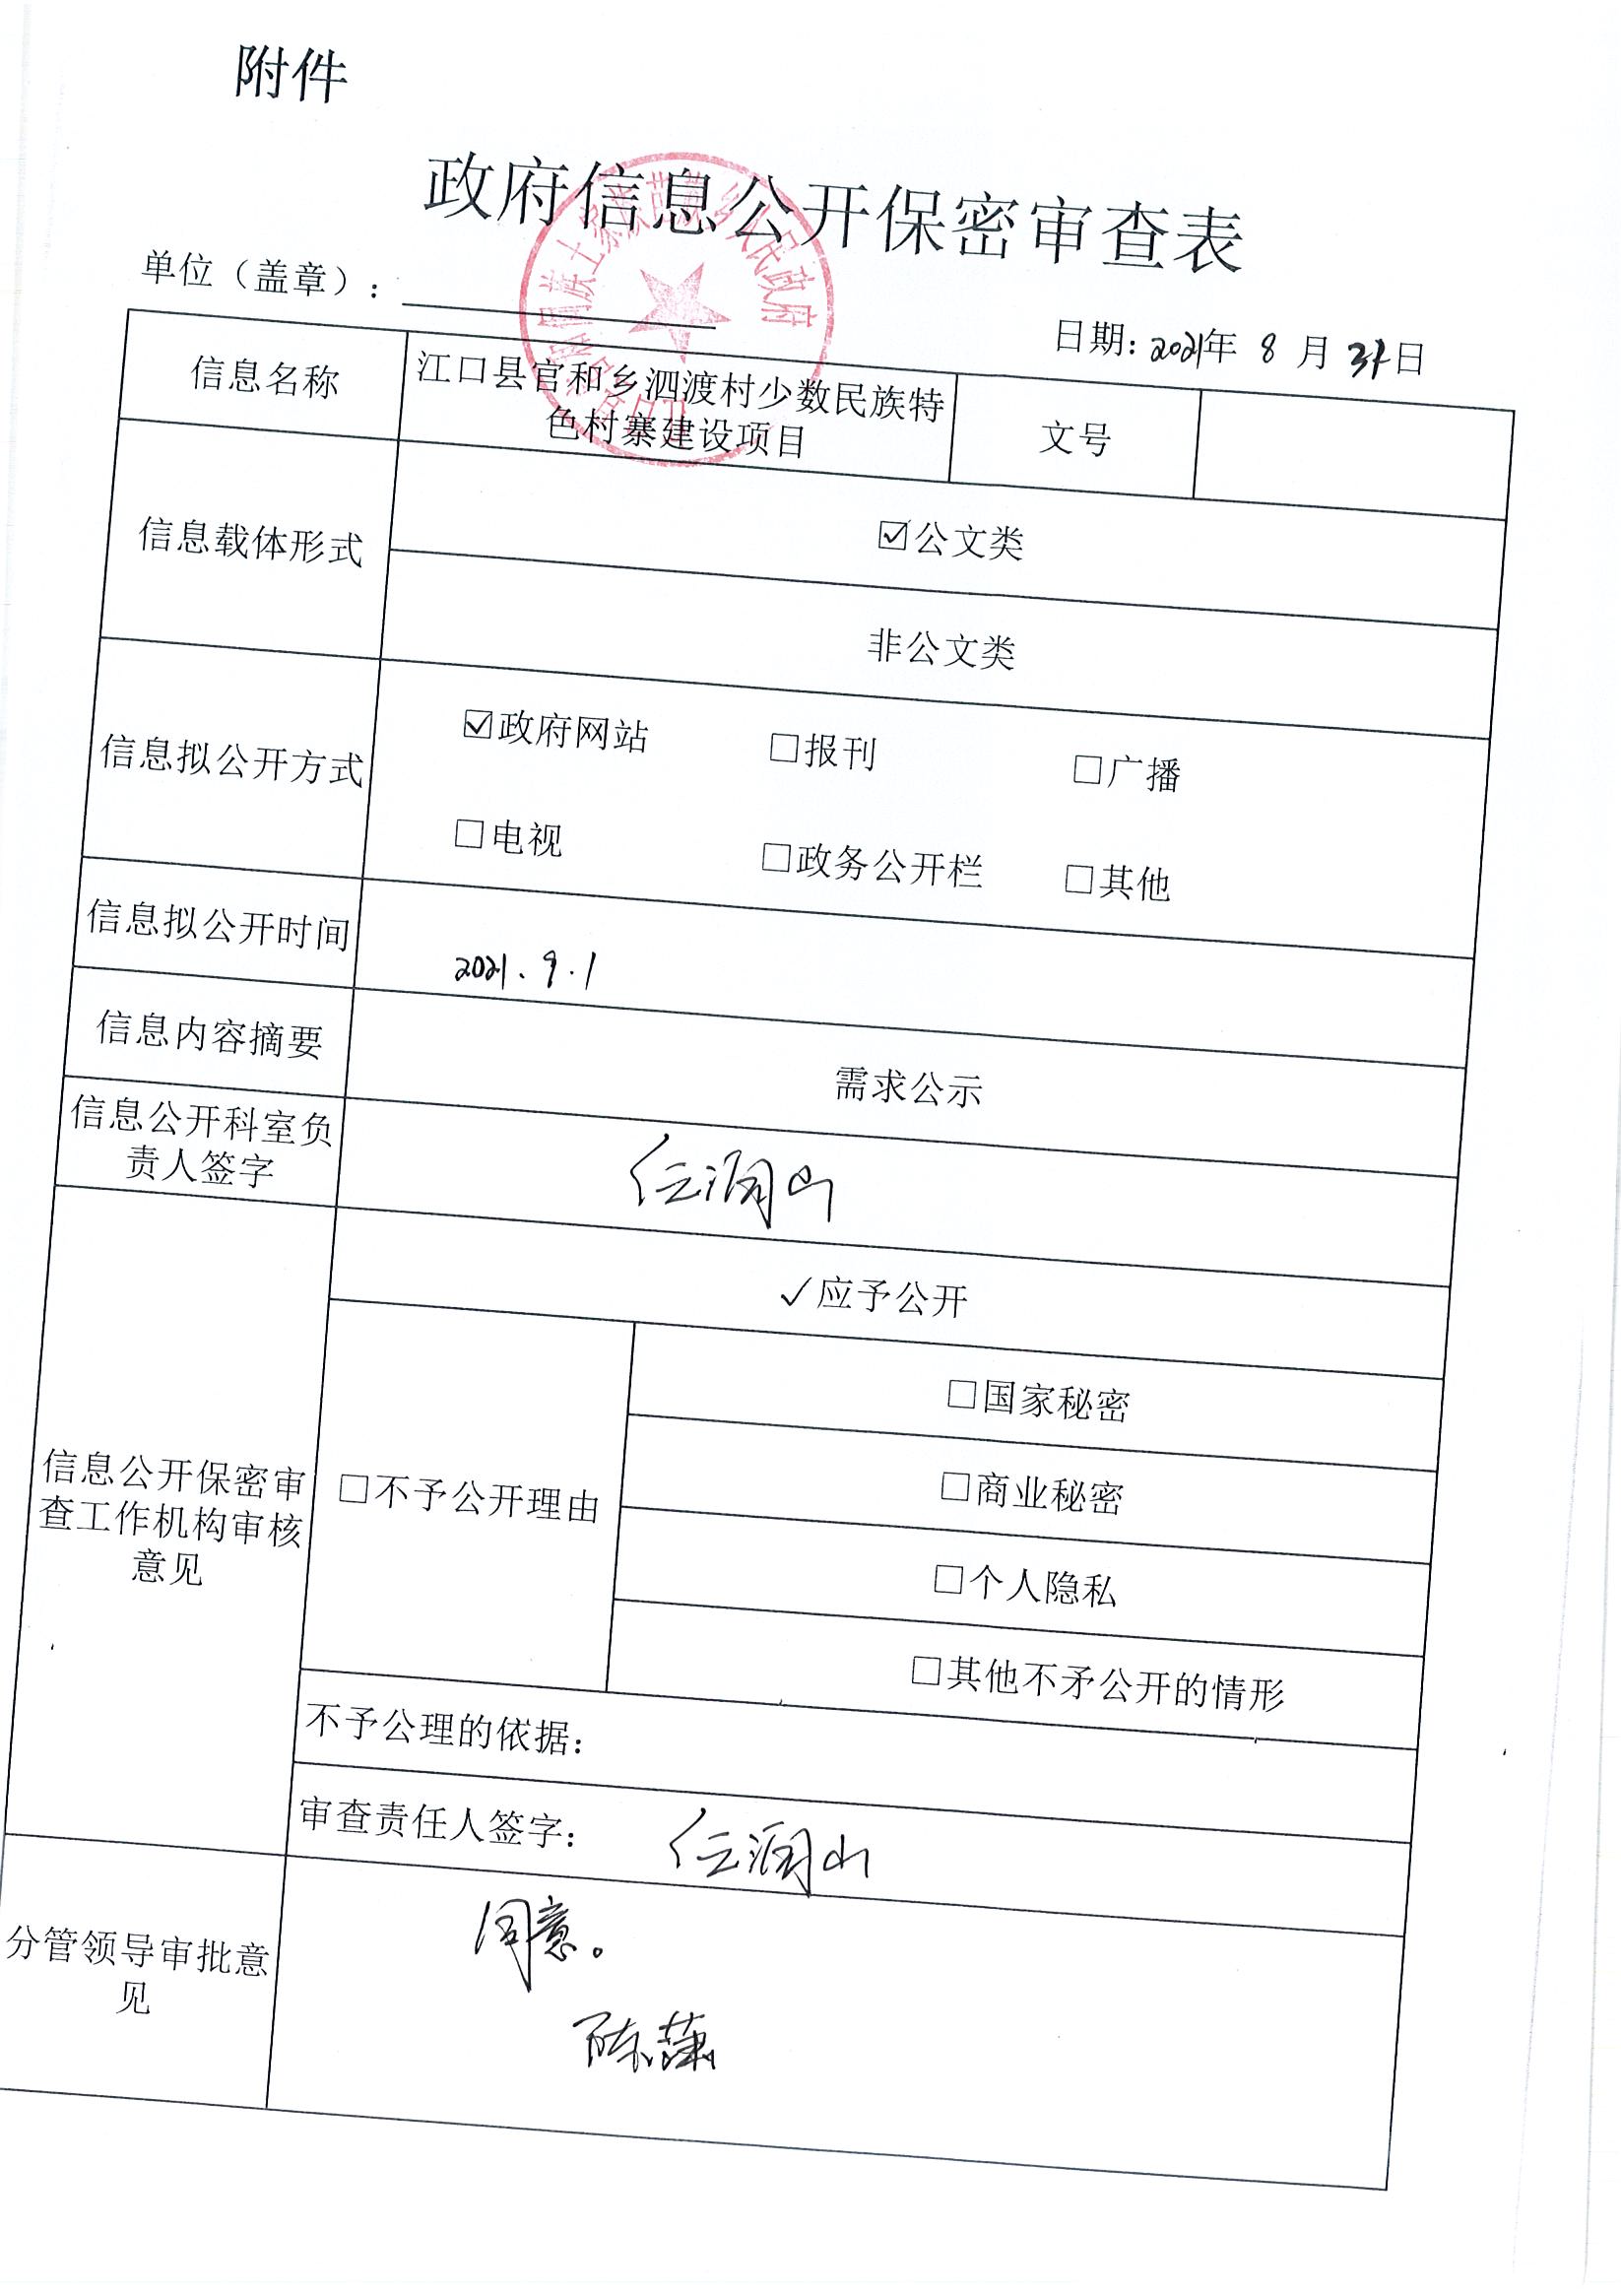 附件
政府信息公开保密审查表
单位（盖章）：
日期：2021年 8 月 31日
信息名称
江口县官和乡泗渡村少数民族特
色村寨建设项目
文号
信息载体形式
☑公文类
非公文类
信息拟公开方式
☑政府网站 □报刊 □广播
□电视 □政务公开栏 □其他
信息拟公开时间
2021.9.1
信息内容摘要
需求公示
信息公开科室负
责人签字
任润山
✓应予公开
信息公开保密审
查工作机构审核
意见
□不予公开理由
□国家秘密
□商业秘密
□个人隐私
□其他不矛公开的情形
不予公理的依据：
审查责任人签字： 任润山
分管领导审批意
见
同意。
陈潇